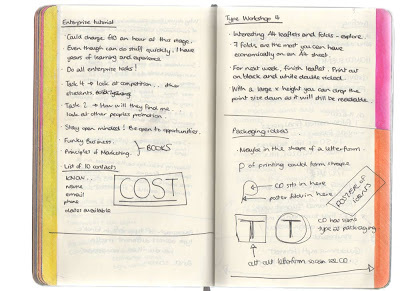 Enterprise tutorial
· Could charge £10 an hour at this stage.
Even though can do stuff quickly, I have
years of learning and experience.
· Do all enterprise tasks!
· Task 4 → look at competition... other
students.
· Task 2 → How will they find me.
look at other peoples promotion.
· Stay open minded! Be open to opportunities.
· Funky Business.
· Principles of Marketing.
} BOOKS
List of 10 contacts
KNOW...
name
email
phone
dates available
COST
Type Workshop 4
· Interesting A4 leaflets and folds - explore.
· 7 folds, are the most you can have
economically on an A4 sheet.
· For next week, finish leaflet. Print out
on black and white double sided.
· With a large x height you can drop the
point size down as it will still be readable.
Packaging ideas.
· Maybe in the shape of a letterform
P of printing could form shape
CD sits in here
poster folds in here
POSTERS OF
T T
CD has same
type as packaging
cut out letterform so can see CD.